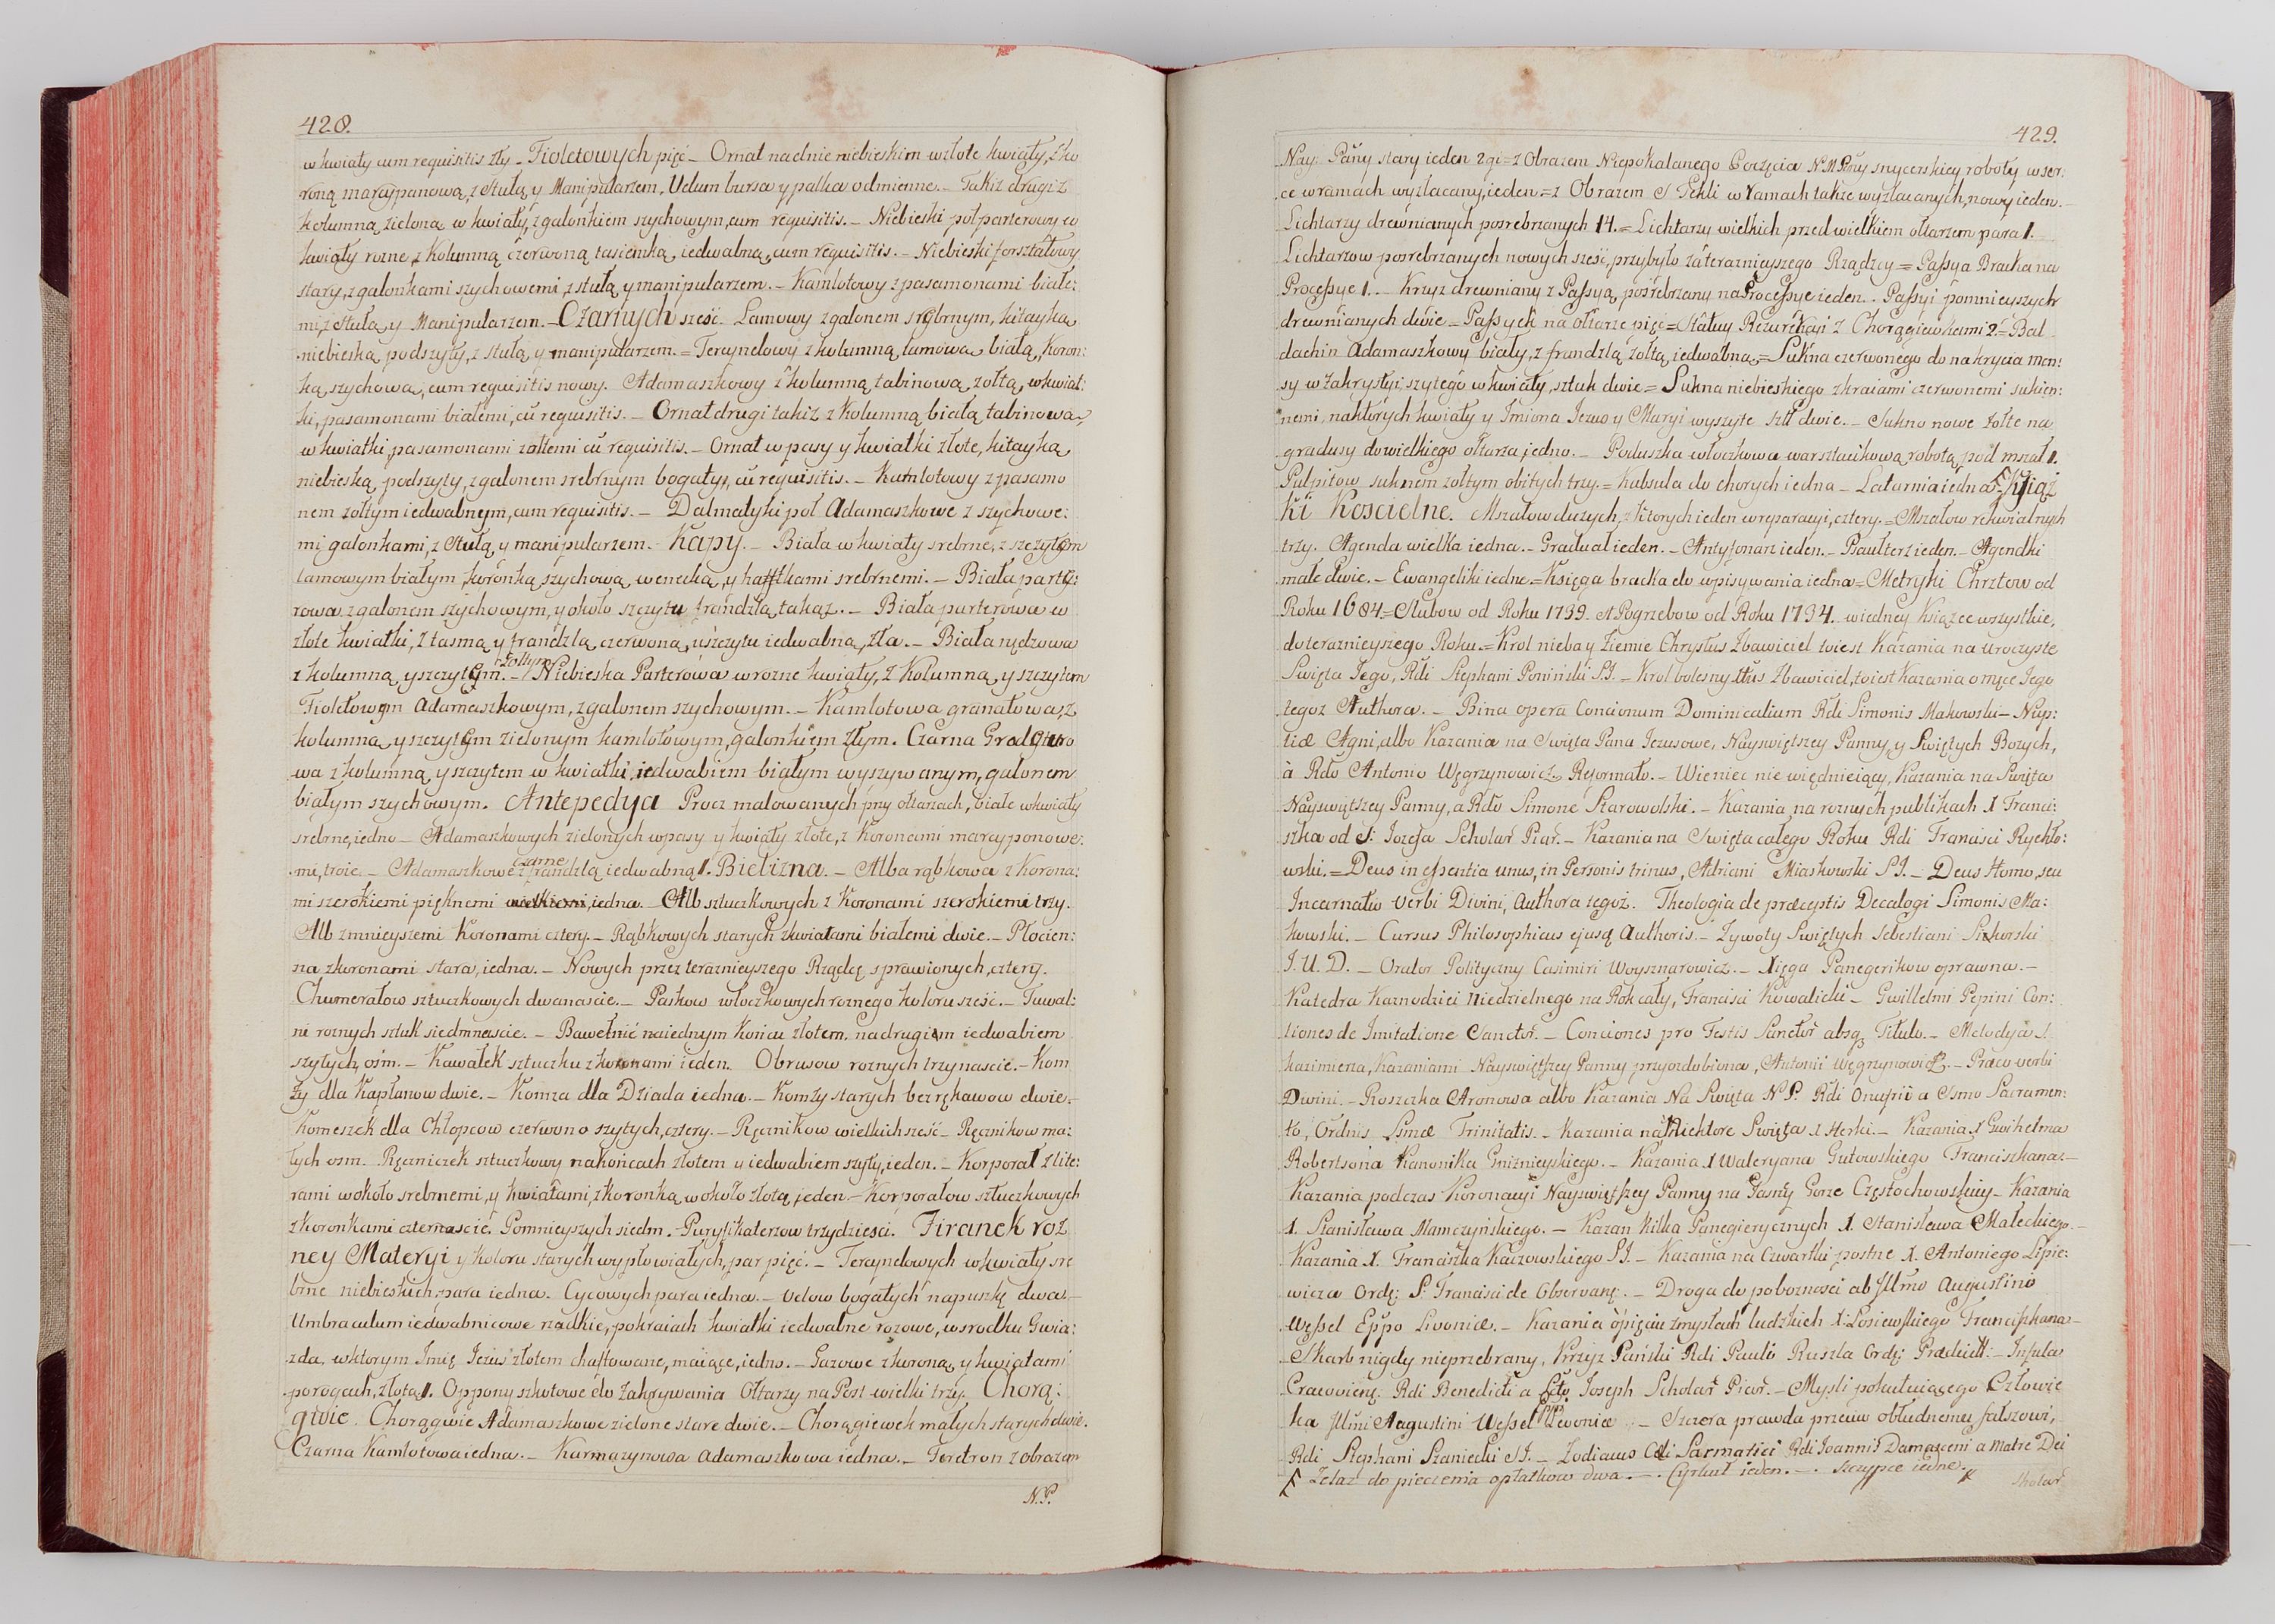 428.
w kwiaty cum requisitis zły. Fioletowych pięć – Ornat na dnie niebieskim w złote kwiaty, z ko
roną marcypanową, z stułą, y Manipularzem, Velum bursa y palka odmienne. – Takiż drugi z
kolumną zieloną w kwiaty, z galonkiem szychowym, cum requisitis. – Niebieski pół parterowy w
kwiaty rozne z Kolumną czerwoną tasiemką jedwabną, cum requisitis. – Niebieski forsztatowy
stary, z galonkami szychowemi, z stułą y manipularzem. – Kamlotowy z pasamonami białe:
mi, z stułą y Manipularzem. – Czarnych szesć. Lamowy z galonem srebrnym, kitayką
niebieską podszyty, z stułą, y manipularzem. = Tercynelowy z kolumną lamową białą, Koron:
ką, szychową, cum requisitis nowy. Adamaszkowy z kolumną tabinową, zołtą, w kwiat:
ki, pasamonami białemi, cū requisitis. – Ornat drugi takiż z Kolumną białą tabinową
w kwiatki, pasamonami zołtemi cū requisitis. – Ornat w pasy y kwiatki złote, kitayką
niebieską podszyty, z galonem srebrnym bogaty, cū requisitis. – Kamlotowy z pasamo
nem zołtym iedwabnym, cum requisitis. – Dalmatyki poł Adamaszkowe z szychowe:
mi galonkami, z stułą, y manipularzem. – Kapy. – Biała w kwiaty srebrne, z szczytem
lamowym białym koronką szychową, wenecką, y haftkami srebrnemi. – Biała parte:
rowa z galonem szychowym, y około szczytu frandzlą takąż. – Biała parterowa w
złote kwiatki, z tasmą y frandzlą czerwoną, u szczytu iedwabną, zła. – Biała rydzowa
z kolumną, y szczytem zołtym. – Niebieska Parterowa w rozne kwiaty, z Kolumną, y szczytem
Fioletowym Adamaszkowym, z galonem szychowym. – Kamlotowa granatowa, z
kolumną, y szczytem zielonym kamlotowym, galonkiem złym. Czarna Grodeturo
wa z kolumną, y szczytem w kwiatki, iedwabiem białym wyszywanym, galonem
białym szychowym. Antepedya Procz malowanych przy ołtarzach, białe w kwiaty
srebrne, iedno – Adamaszkowych zielonych w pasy y kwiaty złote, z Koronami marcyponowe:
mi, troie. – Adamaszkowe czarne z frandzlą iedwabną 1. Bielizna. – Alba rąbkowa z Korona:
mi szerokiemi pięknemi, iedna. – Alb sztuczkowych z Koronami szerokiemi trzy.
Alb z mnieyszemi Koronami cztery. – Rąbkowych starych z kwiatami białemi dwie. – Płocien:
na z koronami stara, iedna. – Nowych przez teraznieyszego Rządcę, sprawionych, cztery.
Chumerałow sztuczkowych dwanascie. – Paskow włoczkowych roznego koloru szesć. – Tuwal:
ni roznych sztuk siedmnascie. – Bawełnic na iednym Koncu złotem, na drugiem iedwabiem
szytych, osm. – Kawałek sztuczku z koronami ieden. Obrusow roznych trzynascie. – Kom
zy dla Kapłanow dwie. – Komza dla Dziada iedna. – Komzy starych bez rękawow dwie. –
Komeszek dla Chłopcow czerwono szytych, cztery. – Ręcznikow wielkich szesć – Ręcznikow ma:
łych osm. Ręczniczek sztuczkowy na końcach złotem y iedwabiem szyty, ieden. – Korporał z lite:
rami wokoło srebrnemi, y kwiatami, z koronką, wokoło złotą, ieden. – Korporałow sztuczkowych
z koronkami czternascie. Pomnieyszych siedm. – Puryfikaterzow trzydziesci. Firanek roz
ney Materyi y koloru starych wypłowiałych, par pięć. – Tercynelowych w kwiaty sre
brne niebieskich, para iedna. Cycowych para iedna. – Velow bogatych na puszkę dwa. –
Umbraculum iedwabnicowe rzadkie, po kraiach kwiatki iedwabne rozowe, w srodku Gwia:
zda, w ktorym Imię Jezus złotem chaftowane, maiące, iedno. – Gazowe z koroną y kwiatami
po rogach, złotą 1. Oppony szkotowe do Zakrywania Ołtarzy na Post wielki trzy. Chorą:
gwie. Chorągwie Adamaszkowe zielone stare dwie. – Chorągiewek małych starych dwie.
Czarna Kamlotowa iedna. – Karmazynowa adamaszkowa iedna. – Feretron z obrazem
N.P.
429.
Nay: Pañy stary ieden 2gi = z Obrazem Niepokalanego Poczęcia N. M. Pñy snycerskiey roboty w ser:
ce w ramach wyzłacany, ieden = z Obrazem S Tekli w Ramach takze wyzłacanych, nowy ieden. –
Lichtarzy drewnianych posrebrzanych 14. = Lichtarzy wielkich przed wielkiem ołtarzem para 1. –
Lichtarzow posrebrzanych nowych szesć, przybyło za teraznieyszego Rządzcy = Passya Bracka na
Processye 1. – Krzyz drewniany z Passyą, posrebrzany na Processye ieden. – Passyi pomnieyszych
drewnianych dwie – Passyek na ołtarze pięć = Statuy Rezurekcyi z Chorągiewkami 2. = Bal
dachin Adamaszkowy biały, z frandzlą zołtą, iedwabną = Sukna czerwonego do nakrycia men:
sy w Zakrystyi, szytego w kwiaty, sztuk dwie = Sukna niebieskiego z kraiami czerwonemi sukien:
nemi, na ktorych kwiaty y Imiona Jezus y Maryi wyszyte szt dwie. – Sukno nowe zołte na
gradusy do wielkiego ołtarza jedno. – Poduszka włoczkowa warsztackową robotą pod mszał 1.
Pulpitow suknem zołtym obitych trzy. = Kabsula do chorych iedna – Latarnia iedna Xiąż
ki Koscielne. Mszałow duzych, z ktorych ieden w reparacyi, cztery. = Mszałow rekwialnych
trzy. Agenda wielka iedna. – Graduał ieden. – Antyfonarz ieden. – Psałterz ieden. – Agendki
małe dwie. – Ewangeliki iedne. = Księga bracka do wpisywania iedna = Metryki Chrztow od
Roku 1684 = Slubow od Roku 1739. A Pogrzebow od Roku 1734. w iedney Książce wszystkie,
do teraznieyszego Roku. = Krol nieba y Ziemie Chrystus Zbawiciel to iest Kazania na uroczyste
Swięta Jego, Rdi Stephani Poniński S.J. – Krol bolesny Xtus Zbawiciel, to iest Kazania o męce Jego
tegoz Authora. – Bina opera Concionum Dominicalium Rdi Simonis Makowski – Nup:
tiæ Agni, albo Kazania na Swięta Pana Jezusowe, Nayswiętszey Panny, y Swiętych Bozych,
à Rdo Antonio Węgrzynowicz Reformato. – Wieniec nie więdnieiący, Kazania na Swięta
Nayswiętszey Panny, a Rdo Simone Starowolski. – Kazania na roznych publikach X Franci:
szka od S: Jozefa Scholar̃ Piar̃. – Kazania na Swięta całego Roku Rdi Francisci Rychło:
wski. = Deus in essentia unus, in Personis trinus, Adriani Miaskowski S J. – Deus Homo, seu
Incarnatio Verbi Divini, Authora tegoż. Theologia de præceptis Decalogi Simonis Ma:
kowski. – Cursus Philosophicus ejusq̃ Authoris. – Zywoty Swiętych Sebestiani
J. U. D. – Orator Polityczny Casimiri Woysznarowicz. – Xięga Panegerikow oprawna. –
Katedra Kaznodziei Niedzielnego na Rok cały, Francisci Kowalicki – Gwillelmi Pepini Con:
tiones de Imitatione Sanctor̃. – Conciones pro Festis Sanctor̃ absq̃ Titulo. – Melodya S
Kazimierza, Kazaniami Nayswiętszey Panny przyozdobiona, Antonii Węgrzynowicz. – Praco verbi
Divini. – Roszczka Aronowa albo Kazania Na Swięta N P. Rdi Onufrii a Ssmo Sacramen:
to, Ordnis Ssmæ Trinitatis. – Kazania na Niektore Swięta X Herki. – Kazania X Gwilhelma
Robertsona Kanonika Gniznieyskiego. – Kazania X Waleryana Gutowskiego Franciszkana. –
Kazania podczas Koronacyi Nayswiętszey Panny na Jasney Gorze Częstochowskiey – Kazania
X. Stanisława Mamczyńskiego. – Kazan kilka Panegierycznych X. Stanisława Małeckiego. –
Kazania X. Franciszka Kaczowskiego S J. – Kazania na Czwartki postne X. Antoniego Lipie:
wicza Ord: S. Francisci de Observan: – Droga do poboznosci ab Illmo Augustino
Wessel Eppo Livoniæ. – Kazania o pięciu zmysłach ludzkich X: Losiewskiego Franciszkana –
Skarb nigdy nieprzebrany, Krzyz Pański Rdi Pauli Ruszla Ord: Prædict: – Infula
Cracovien: Rdi Benedicti a Scto Joseph Scholar̃ Piar̃. – Mysli pokutuiącego Człowie
ka Illmi Augustini Wessel Epp. Livoniæ – Szczera prawda przeciw obłudnemu fałszowi,
Rdi Stephani Szaniecki S J. – Zodiacus Cæli Sarmatici Rdi Joannis Damasceni a Matre Dei
Zelaz do pieczenia opłatkow dwa. – Cyrkuł ieden. – szczypce iedne.
Scholar̃